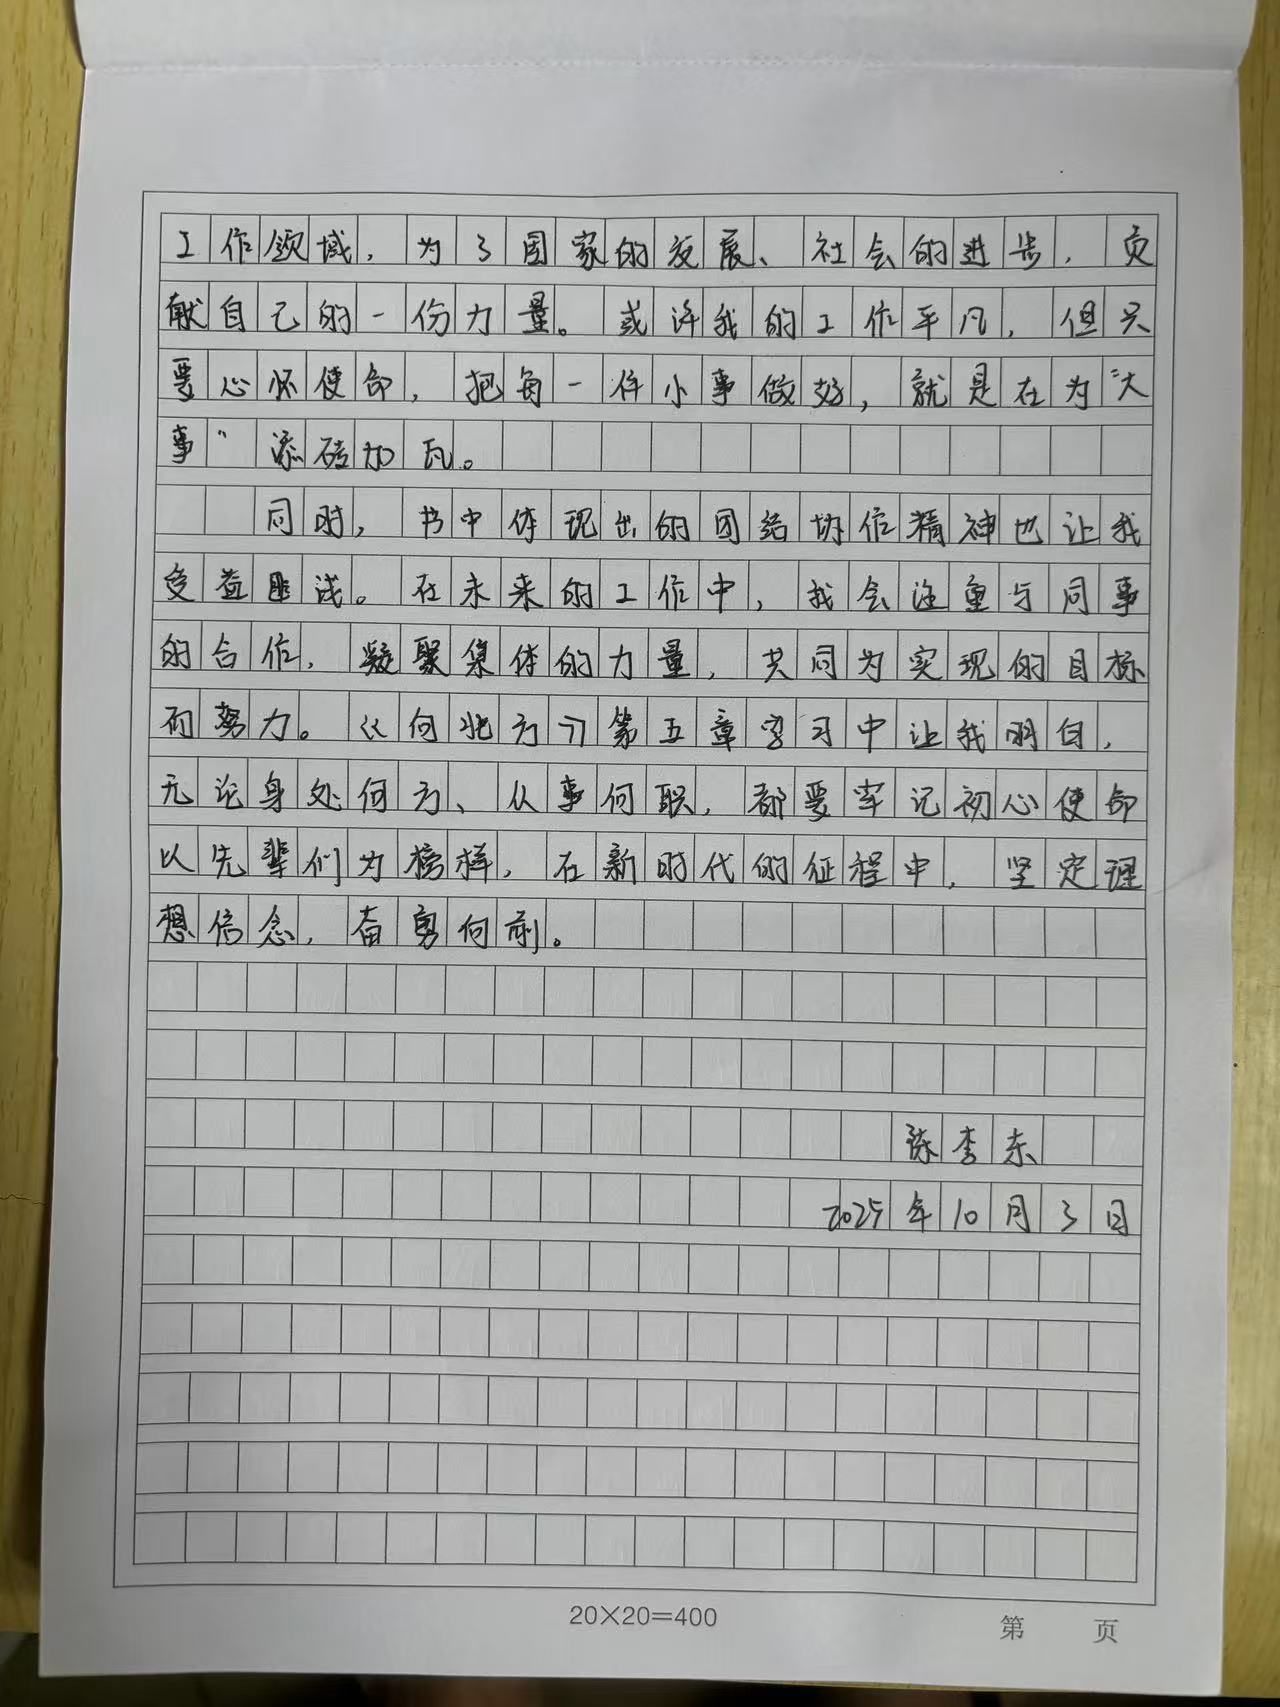 工作领域，为了国家的发展、社会的进步，贡
献自己的一份力量。或许我的工作平凡，但只
要心怀使命，把每一件小事做好，就是在为“大
事”添砖加瓦。
同时，书中体现出的团结协作精神也让我
受益匪浅。在未来的工作中，我会注重与同事
的合作，凝聚集体的力量，共同为实现的目标
而努力。《向北方》第五章学习中让我明白，
无论身处何方、从事何职，都要牢记初心使命
以先辈们为榜样，在新时代的征程中，坚定理
想信念，奋勇向前。
陈李东
2025年10月3日
20×20=400
第 页